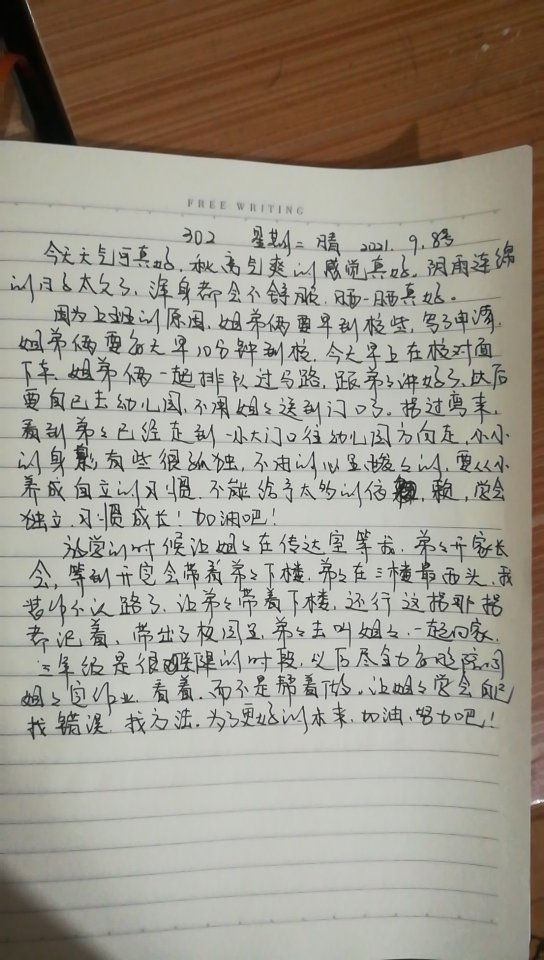 FREE WRITING
302 星期二 晴 2021.9.8号
今天天气可真好，秋高气爽的感觉真好。阴雨连绵
的日子太久了，浑身都会不舒服，晒一晒真好。
因为上班的原因，姐弟俩要早到校些，写了申请，
姐弟俩要每天早10分钟到校，今天早上在校对面
下车，姐弟俩一起排队过马路，跟弟弟讲好了，以后
要自己去幼儿园，不用姐姐送到门口了。拐过弯来，
看到弟弟已经走到一小大门口往幼儿园方向走，小小
的身影有些很孤独，不由的心里酸酸的，要从小
养成自立的习惯，不能给予太多的依赖，学会
独立，习惯成长！加油吧！
放学的时候让姐姐在传达室等我，弟弟开家长
会，等到开完会带着弟弟下楼，弟弟在三楼最西头，我
都不认路了，让弟弟带着下楼，还行这拐那拐
都记着，带出了校园里，弟弟去叫姐姐，一起回家，
三年级是很难降的时段，以后尽全力每晚陪同
姐姐写作业，看着，而不是帮着做。让姐姐学会自己
找错误，找方法。为了更好的未来，加油，努力吧！